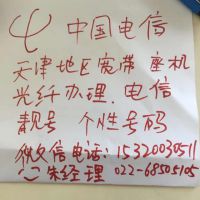 中国电信
天津地区宽带 座机
光纤办理、电信
靓号 个性号码
微信电话:15320030511
朱经理 022-68505105